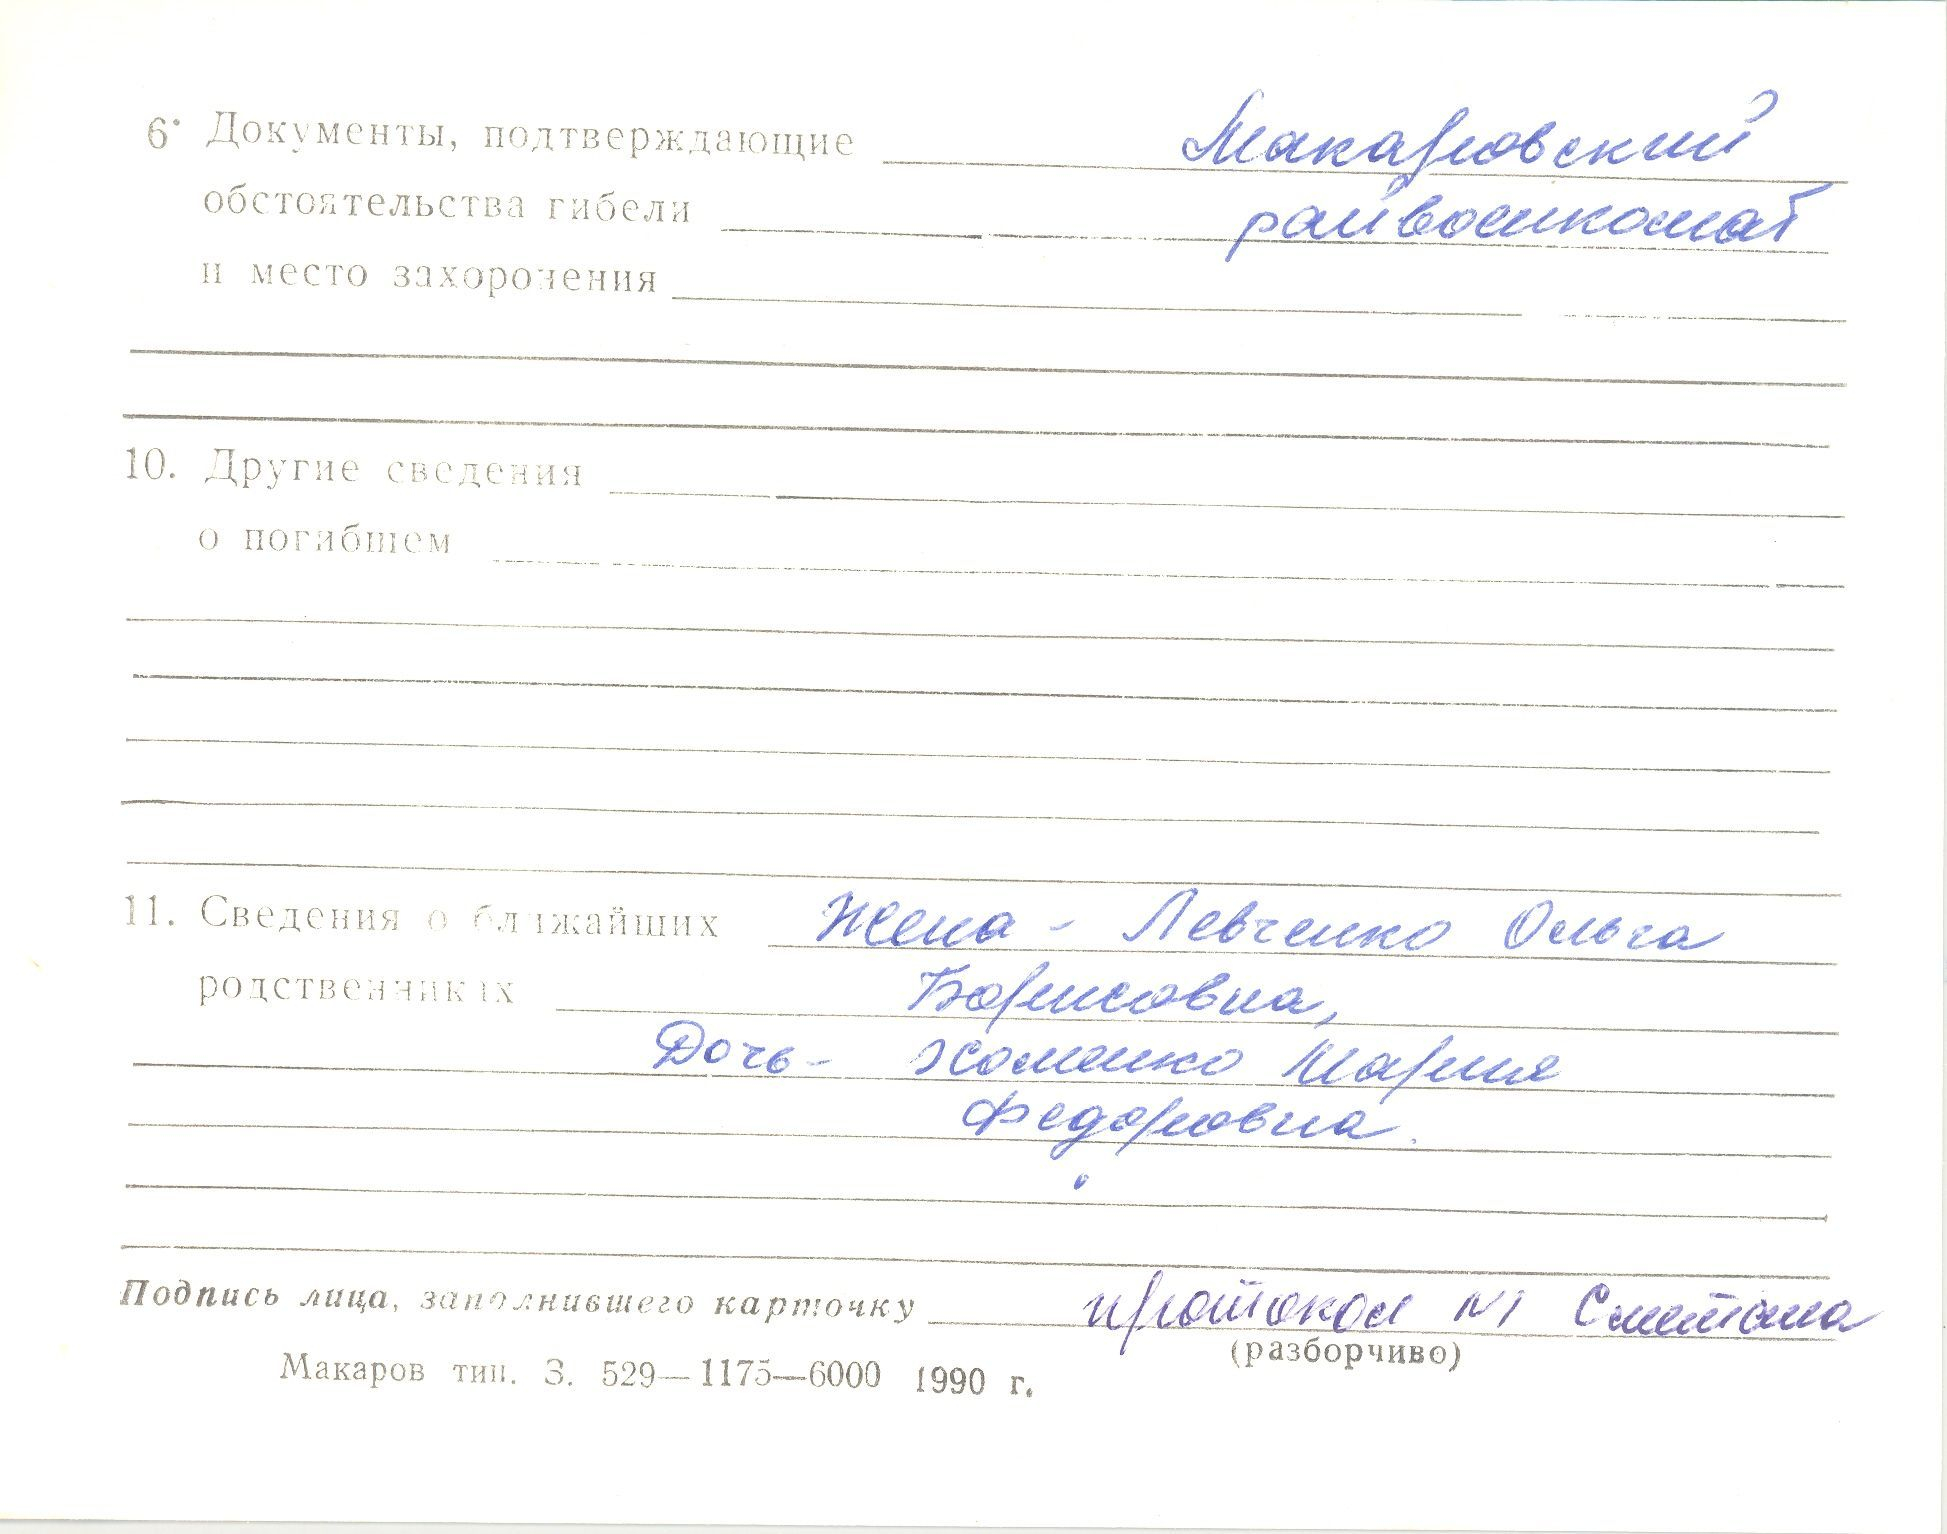 6. Документы, подтверждающие Макаровский
обстоятельства гибели райвоенкомат
и место захоронения
10. Другие сведения
о погибшем
11. Сведения о ближайших Жена - Левченко Ольга
родственниках Борисовна,
Дочь - Хоменко Мария
Федоровна.
Подпись лица, заполнившего карточку протокол №1 Сметана
(разборчиво)
Макаров тип. З. 529—1175—6000 1990 г.